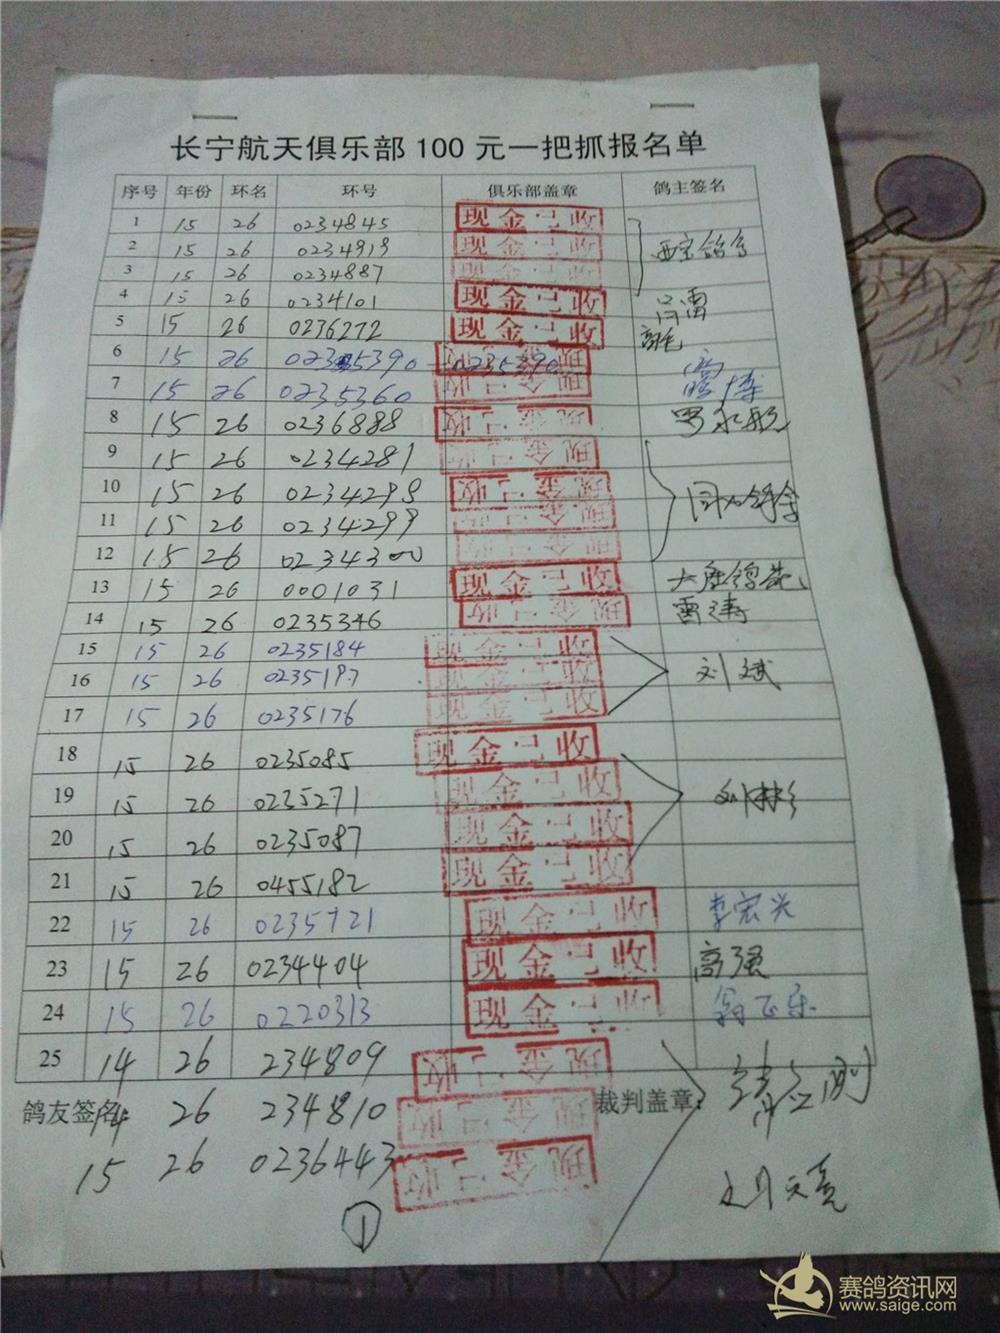 长宁航天俱乐部100元一把抓报名单
序号 年份 环名 环号 俱乐部盖章 鸽主签名
1 15 26 0234845 现金已收
2 15 26 0234919 现金已收 西宝鸽舍
3 15 26 0234887 现金已收
4 15 26 0234101 现金已收 吕雷
5 15 26 0236272 现金已收
6 15 26 0235390 0235390 现金已收
7 15 26 0235360 现金已收
8 15 26 0236888 现金已收
9 15 26 0234281 现金已收
10 15 26 0234298 现金已收
11 15 26 0234299 现金已收
12 15 26 0234300 现金已收
13 15 26 0001031 现金已收
14 15 26 0235346 现金已收 雷涛
15 15 26 0235184 现金已收
16 15 26 0235197 现金已收 刘斌
17 15 26 0235176 现金已收
18 15 26 0235085 现金已收
19 15 26 0235271 现金已收 刘林
20 15 26 0235087 现金已收
21 15 26 0455182 现金已收
22 15 26 0235721 现金已收 李宏兴
23 15 26 0234404 现金已收 高强
24 15 26 0220313 现金已收
25 14 26 234809 现金已收
鸽友签名: 14 26 234810 现金已收 裁判盖章:
15 26 0236443 现金已收
1
赛鸽资讯网
www.saige.com